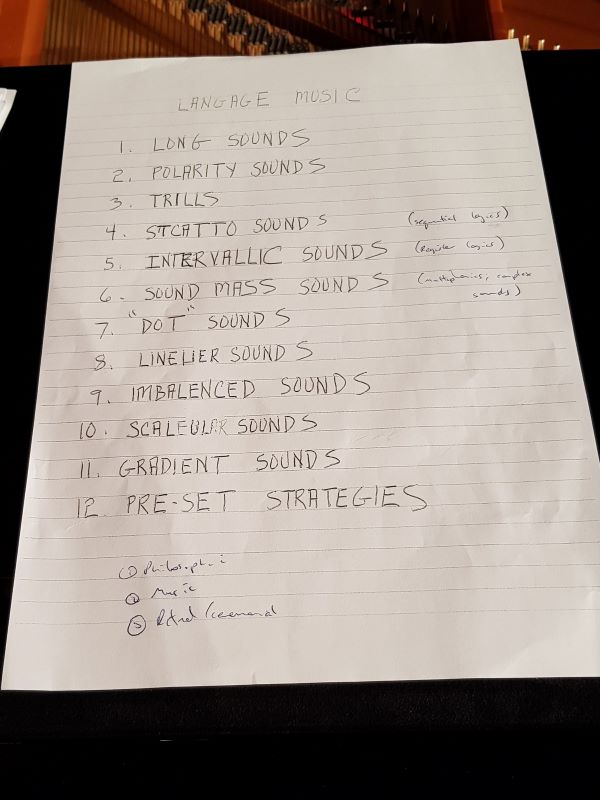 LANGAGE MUSIC
1. LONG SOUNDS
2. POLARITY SOUNDS
3. TRILLS
4. STCATTO SOUNDS (sequential logics)
5. INTERVALLIC SOUNDS (Register logics)
6. SOUND MASS SOUNDS (multiphonics, complex
sounds)
7. "DOT" SOUNDS
8. LINEIER SOUNDS
9. IMBALENCED SOUNDS
10. SCALEULAR SOUNDS
11. GRADIENT SOUNDS
12 PRE-SET STRATEGIES
① Philosophi
② Music
③